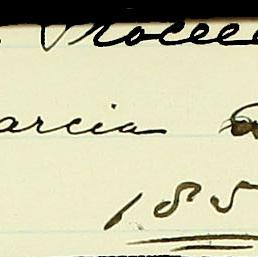 Procee
arcia
185